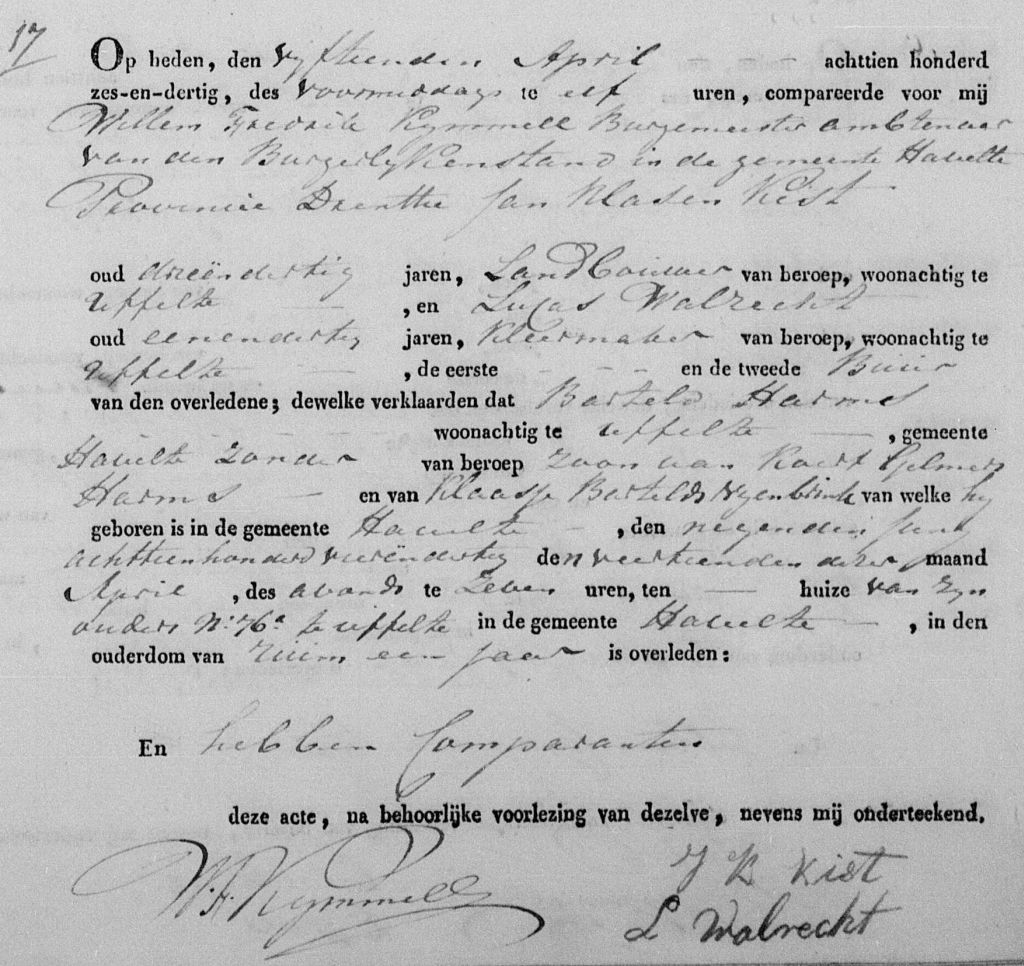 17
Op heden, den vyftienden April achttien honderd
zes-en-dertig, des voormiddags te elf uren, compareerde voor mij
Willem Fredrik Kymmell Burgemeester ambtenaar
van den Burgerlyken stand in de gemeente Havelte
Provincie Drenthe Jan Klasen Kist
oud drieëndertig jaren, Landbouwer van beroep, woonachtig te
Uffelte — , en Lucas Walrecht —
oud eenendertig jaren, Kleermaker van beroep, woonachtig te
Uffelte - — , de eerste - - - en de tweede Buur
van den overledene; dewelke verklaarden dat Barteld Harms
- - - - woonachtig te Uffelte — , gemeente
Havelte zonder van beroep zoon van Koert
Harms — en van Klaasje Bartelds van welke hy
geboren is in de gemeente Havelte - , den negenden Juny
achttienhonderd vierëndertig den veertienden dezer maand
April , des avonds te zeven uren, ten — huize van zyn
ouders No. 76a te Uffelte in de gemeente Havelte — , in den
ouderdom van ruim een jaar is overleden:
En hebben Comparanten
deze acte, na behoorlijke voorlezing van dezelve, nevens mij onderteekend.
W.F. Kymmell J K Kist
L Walrecht